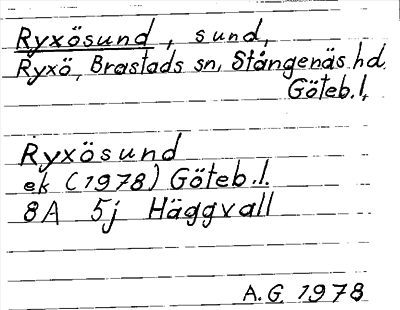 Ryxösund, sund,
Ryxö, Brastads sn, Stångenäs hd.
Göteb.l.
Ryxösund
ek (1978) Göteb.l.
8A 5j Häggvall
A.G. 1978